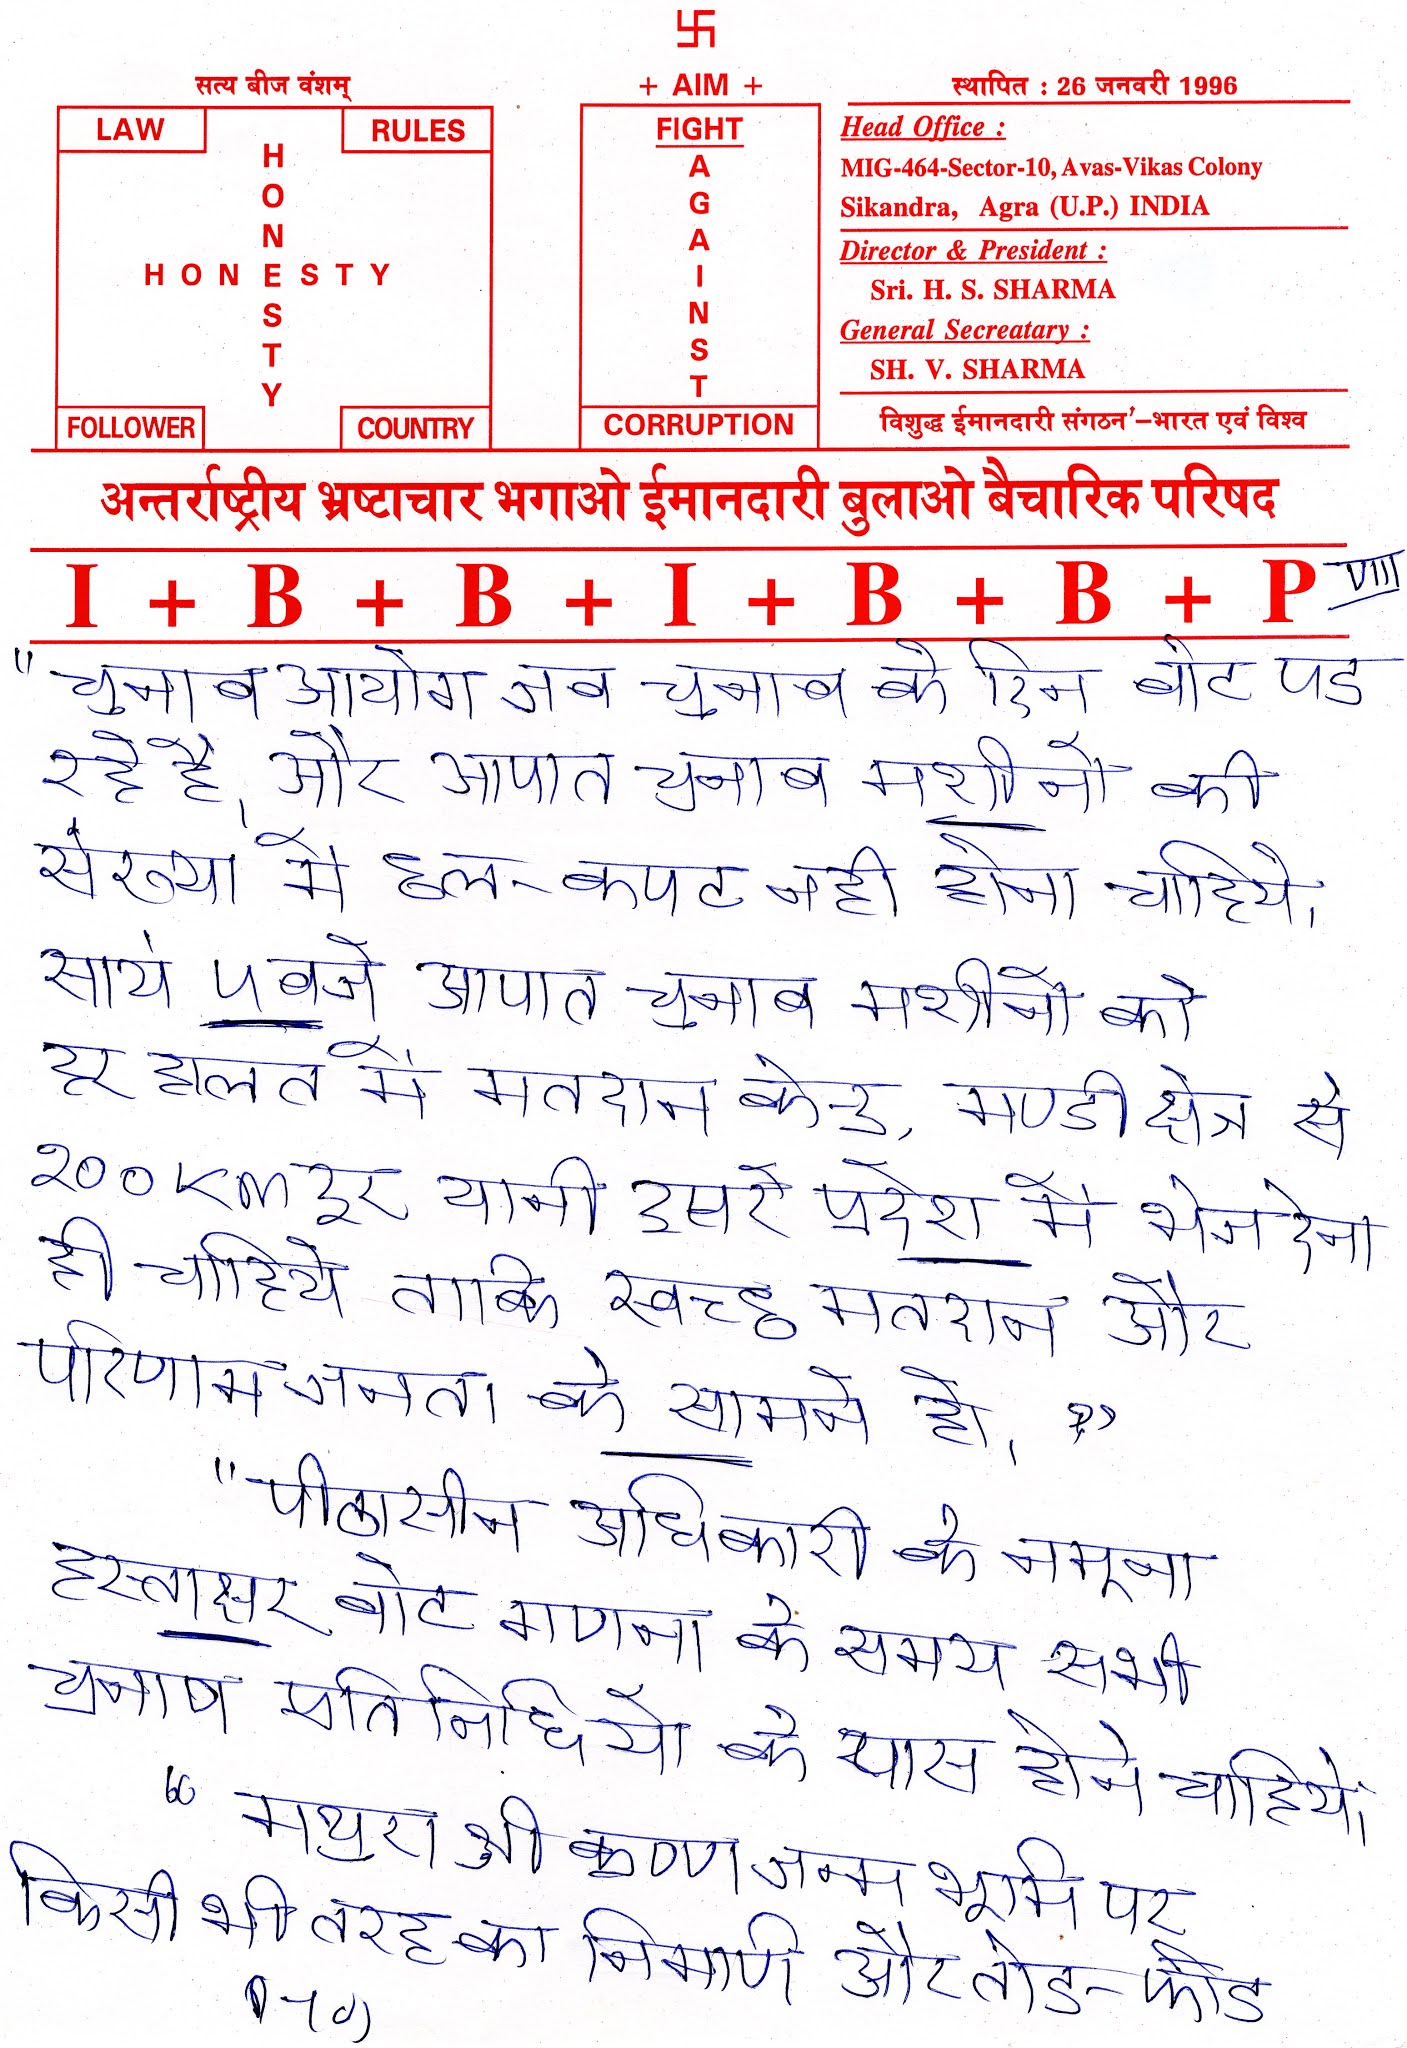 卐
सत्य बीज वंशम्
LAW
RULES
HONESTY
HONESTY
FOLLOWER
COUNTRY
+ AIM +
FIGHT
AGAINST
CORRUPTION
स्थापित : 26 जनवरी 1996
Head Office :
MIG-464-Sector-10, Avas-Vikas Colony
Sikandra, Agra (U.P.) INDIA
Director & President :
Sri. H. S. SHARMA
General Secreatary :
SH. V. SHARMA
विशुद्ध ईमानदारी संगठन'–भारत एवं विश्व
अन्तर्राष्ट्रीय भ्रष्टाचार भगाओ ईमानदारी बुलाओ बैचारिक परिषद
I + B + B + I + B + B + P
VIII
"चुनाब आयोग जब चुनाब के दिन बोट पड
रहे है, और आपात चुनाब मशीनों की
संख्या में छल-कपट नही होना चाहिये।
सायं ५ बजे आपात चुनाब मशीनों को
हर हालत में मतदान केन्द्र, मण्डी क्षेत्र से
२०० KM दूर यानी दुसरे प्रदेश में भेज देना
ही चाहिये ताकि स्वच्छ मतदान और
परिणाम जनता के सामने हो।"
"पीठासीन अधिकारी के नमूना
हस्ताक्षर बोट गणना के समय सभी
चुनाब प्रतिनिधियों के पास होने चाहिये।
"मथुरा श्री कृष्ण जन्म भूमि पर
किसी भी तरह का निमार्ण और तोड-फोड